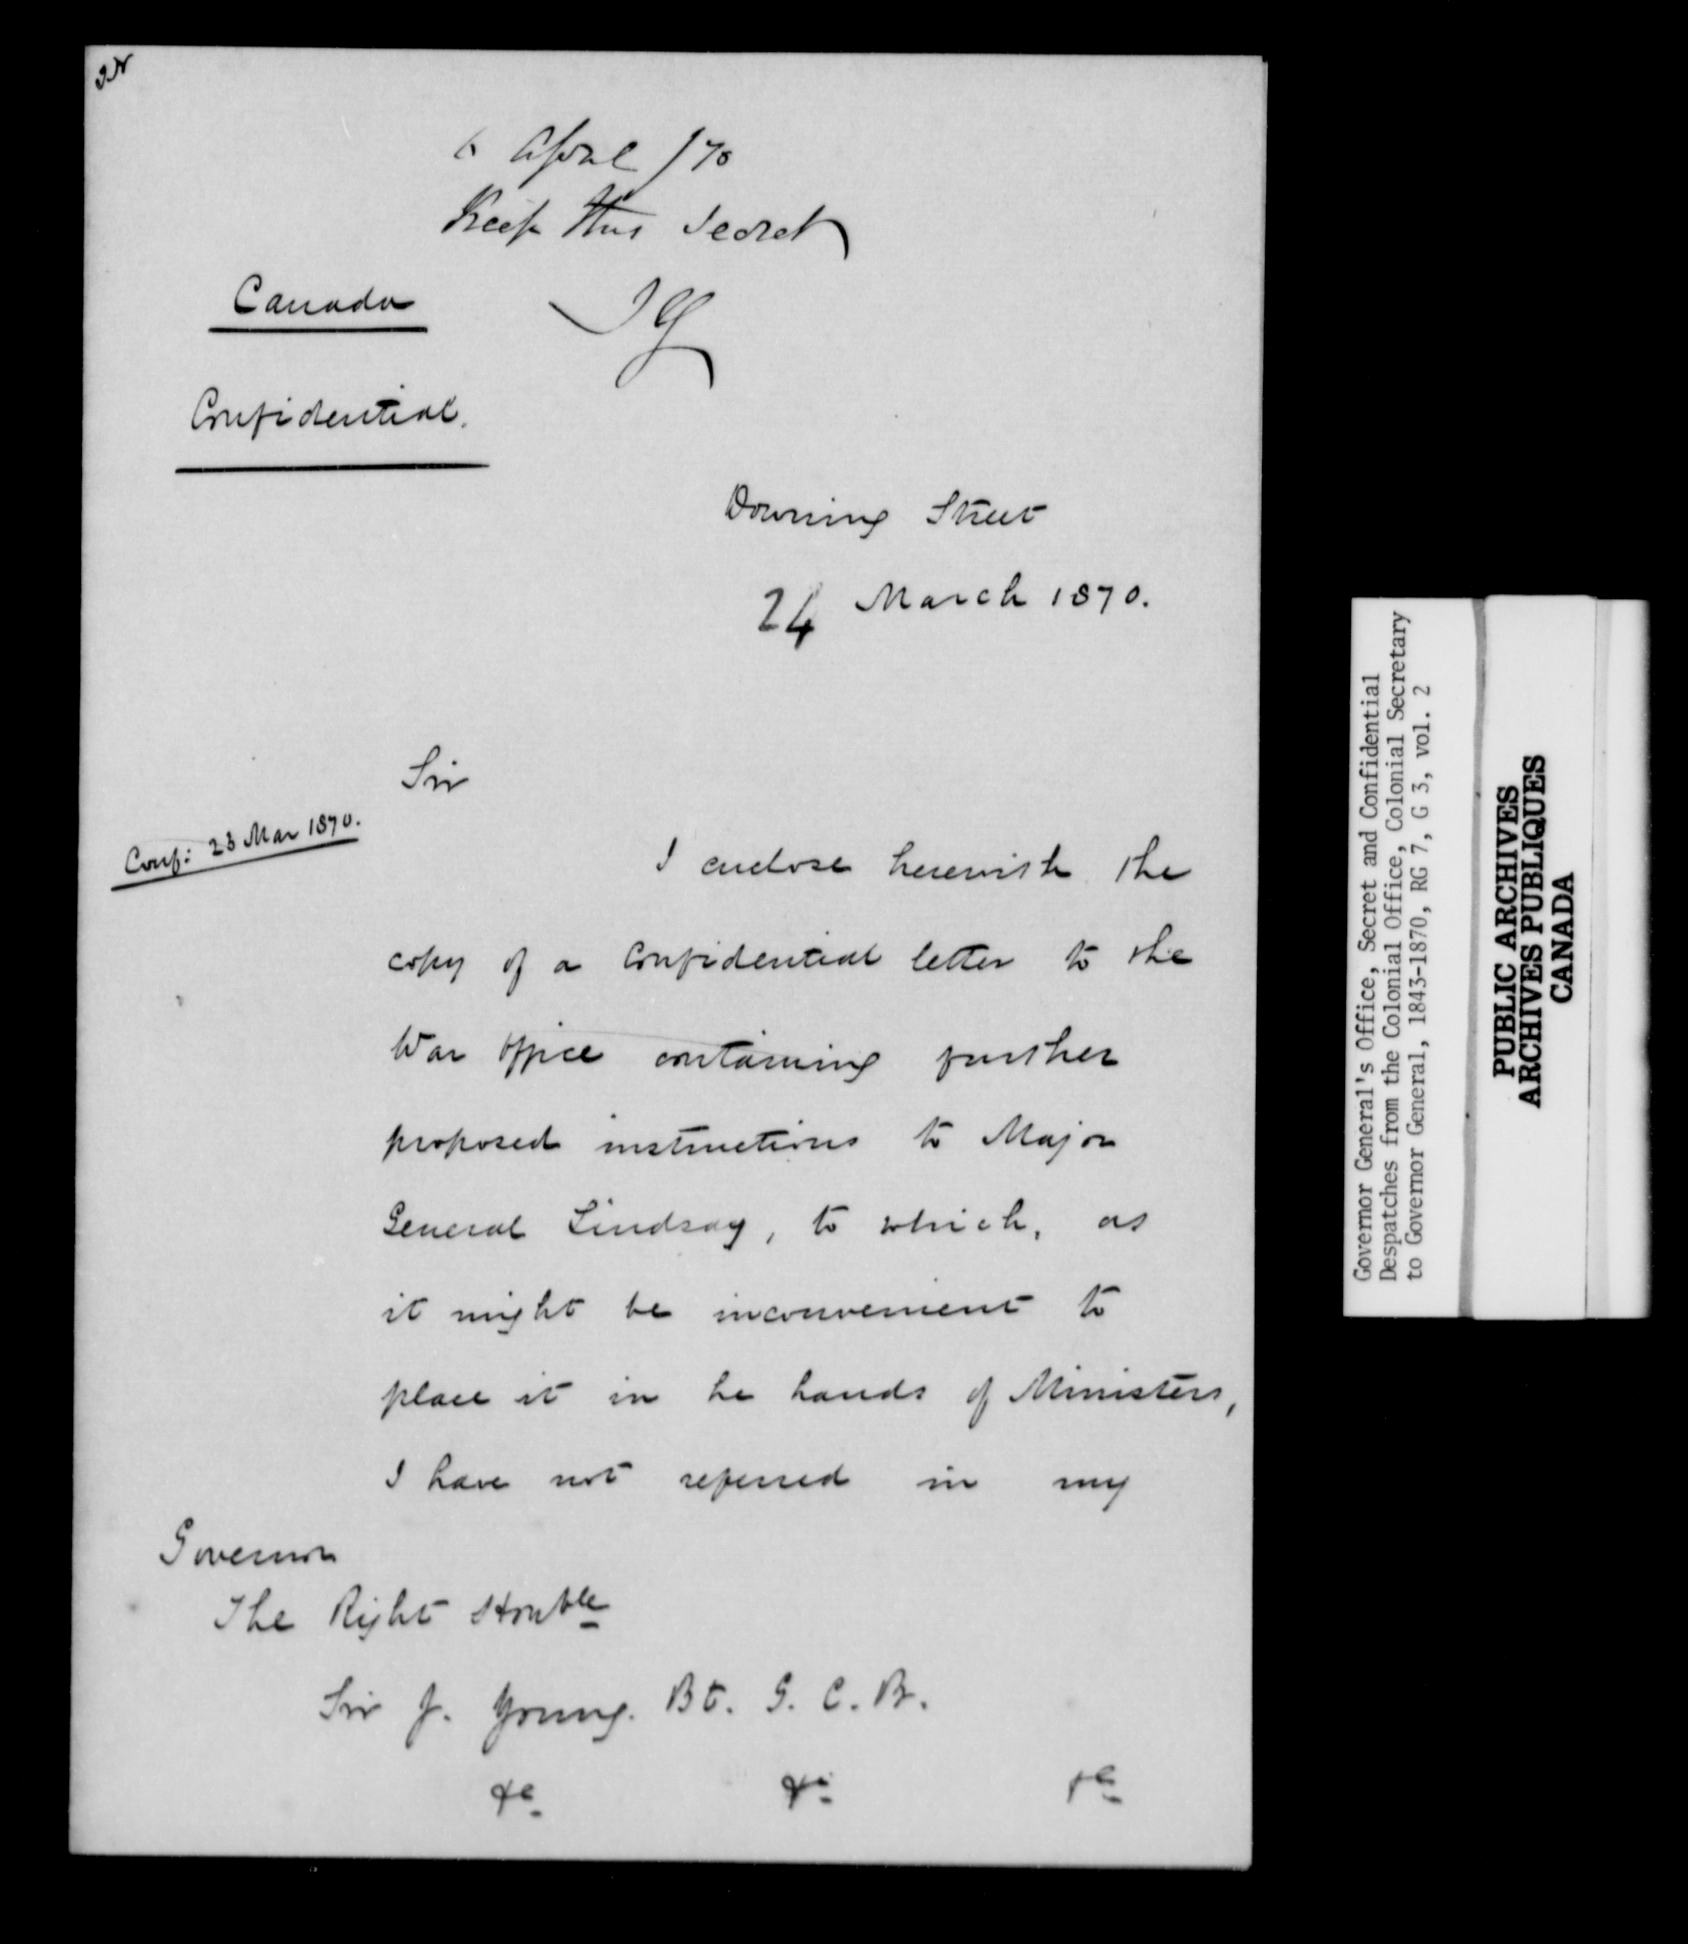 6 April /70
Keep this secret
JY
Canada
Confidential.
Downing Street
24 March 1870.
Sir
Conf: 23 Mar 1870.
I enclose herewith the
copy of a Confidential letter to the
War Office containing further
proposed instructions to Major
General Lindsay, to which, as
it might be inconvenient to
place it in he hands of Ministers,
I have not referred in my
Governor
The Right Honble
Sir J. Young. Bt. G. C. B.
&c &c &c
Governor General's Office, Secret and Confidential
Despatches from the Colonial Office, Colonial Secretary
to Governor General, 1843-1870, RG 7, G 3, vol. 2
PUBLIC ARCHIVES
ARCHIVES PUBLIQUES
CANADA